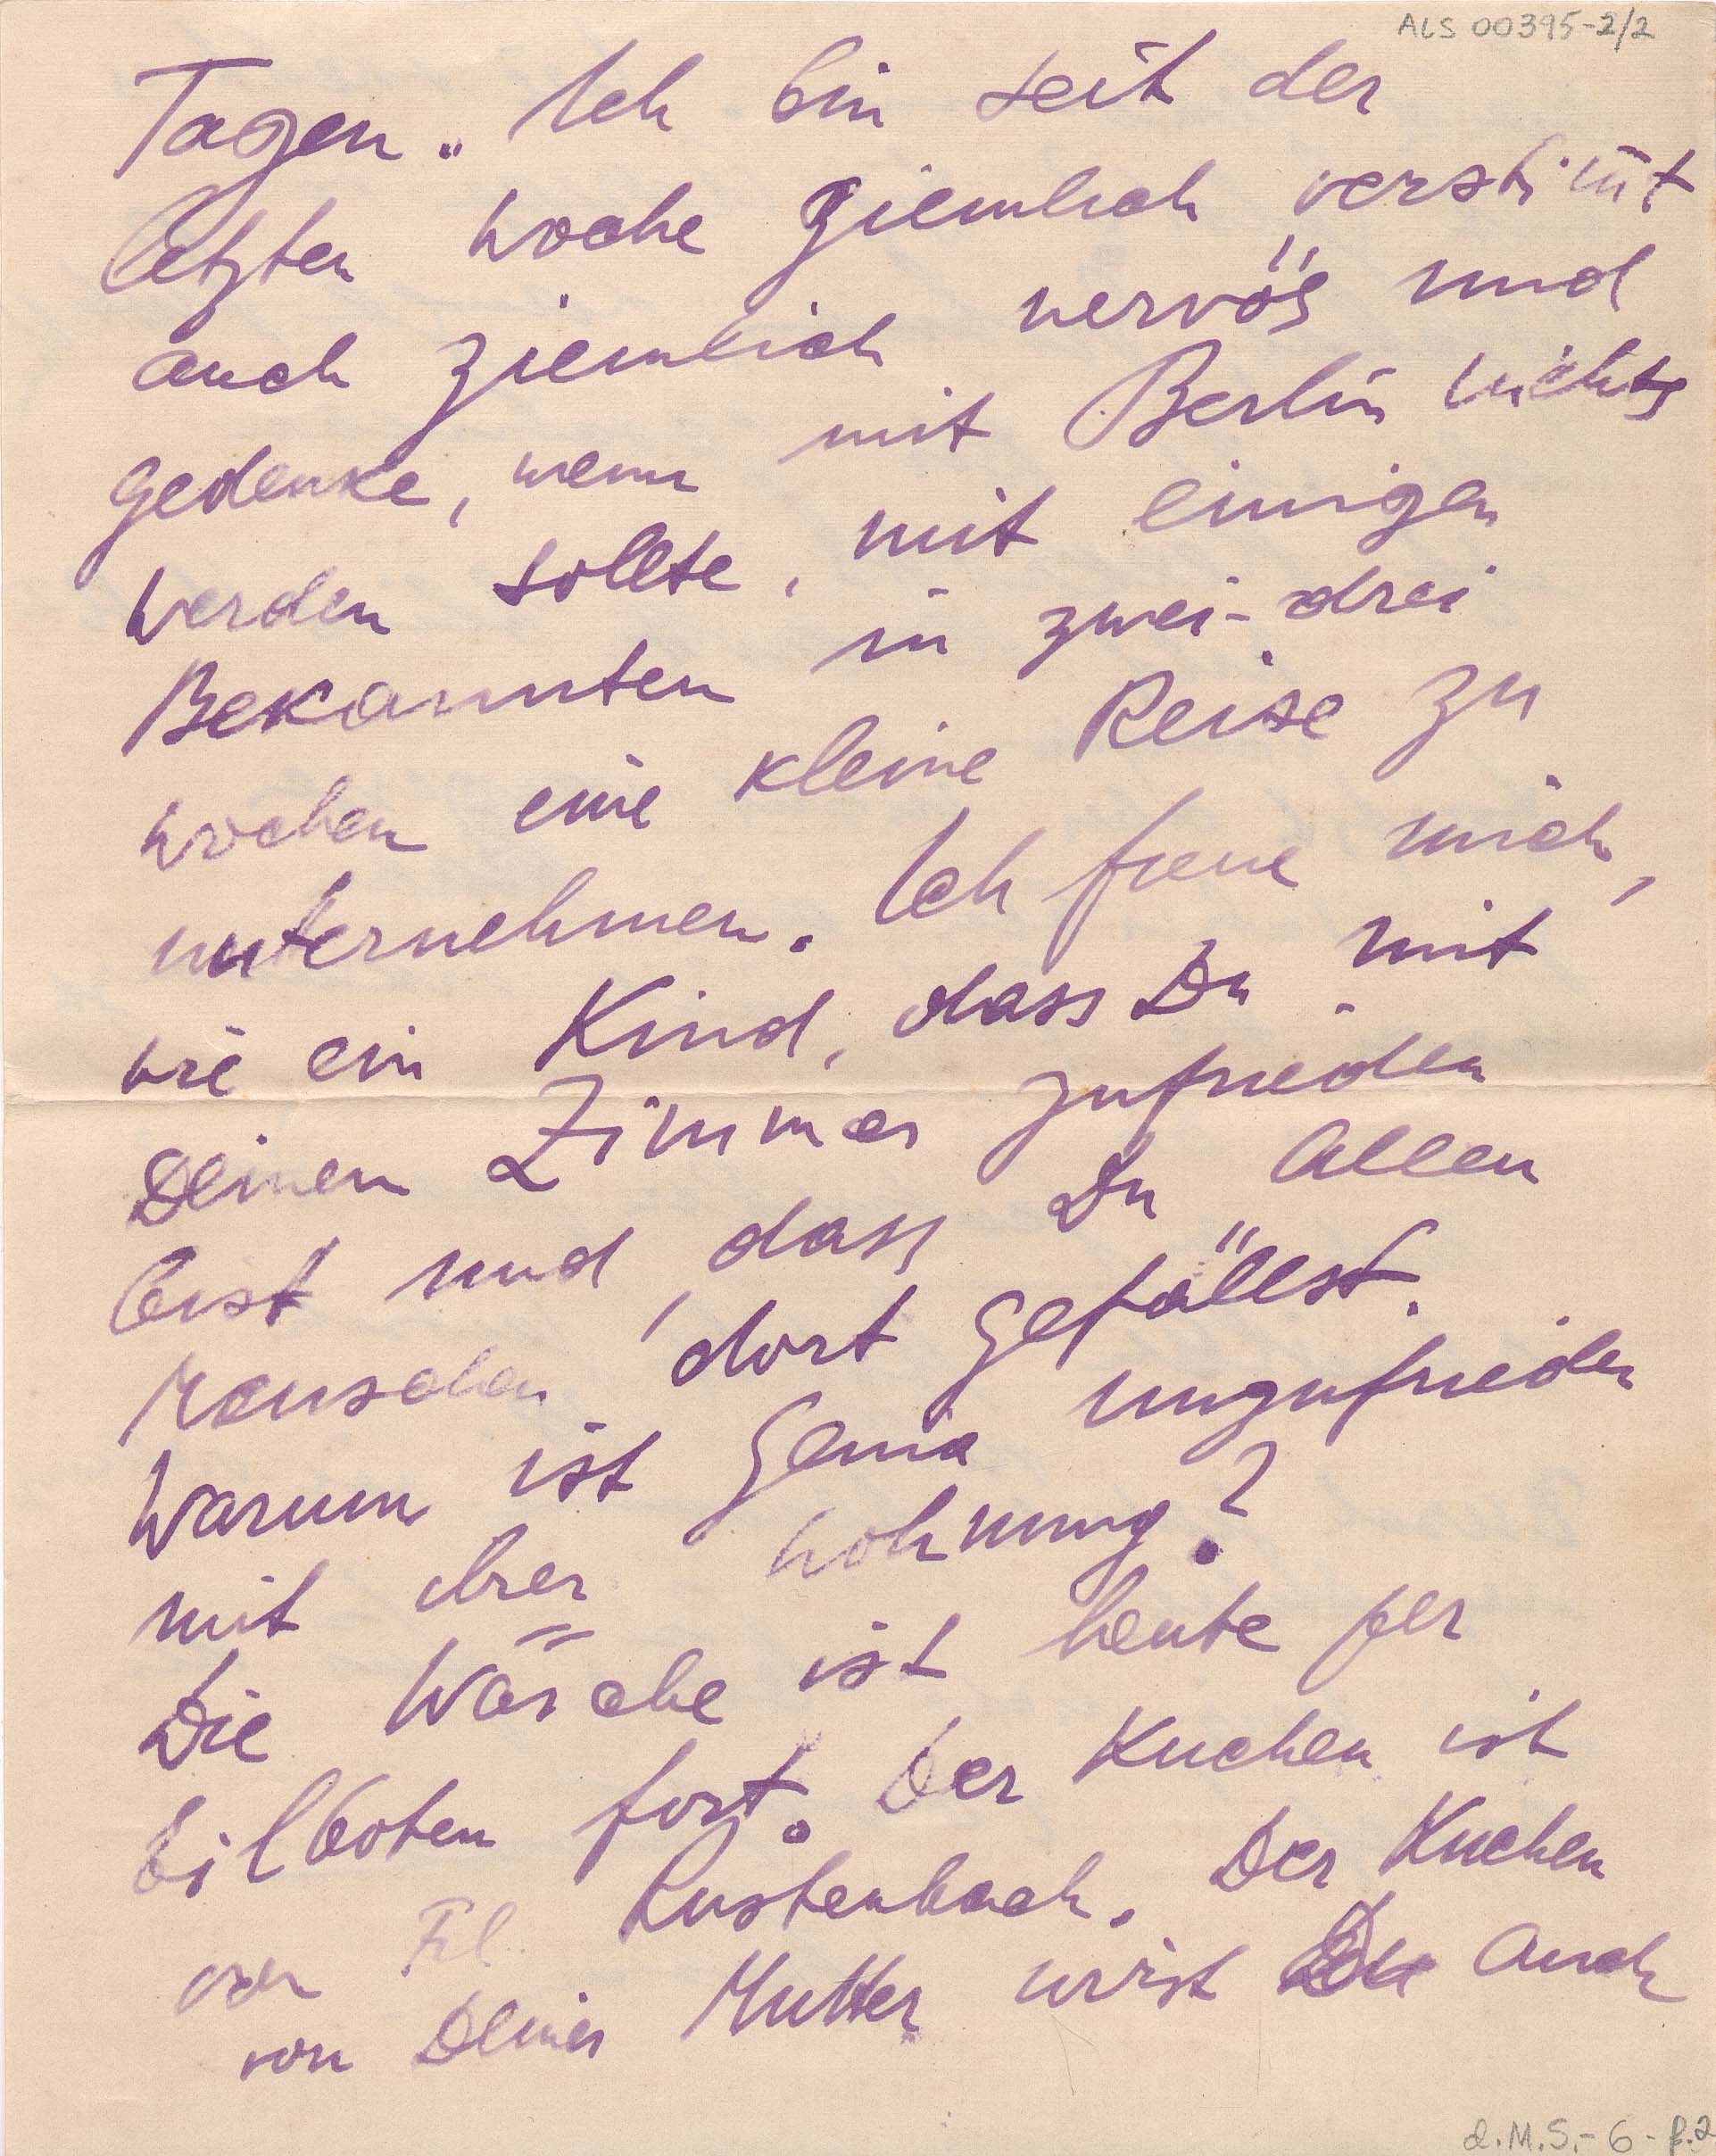 ALS 00395-2/2
Tagen.„ Ich bin seit der
letzten Woche ziemlich verstim̅t
auch ziemlich nervös und
gedenke, wenn mit Berlin nichts
werden sollte, mit einigen
Bekannten in zwei-drei
Wochen eine kleine Reise zu
unternehmen. Ich freue mich,
wie ein Kind, dass Du mit
Deinem Zimmer zufrieden
bist und, dass Du Allen
Menschen dort gefällst.
Warum ist Genia unzufrieden
mit ihrer Wohnung?
Die Wäsche ist heute per
Eilboten fort. Der Kuchen ist
von Frl. Lustenbach. Der Kuchen
von Deiner Mutter wirst Du Auch
d.M.S.-6-f.2